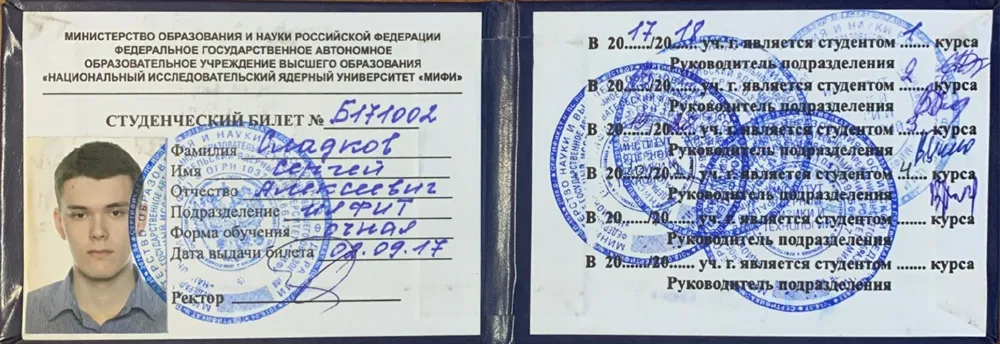 МИНИСТЕРСТВО ОБРАЗОВАНИЯ И НАУКИ РОССИЙСКОЙ ФЕДЕРАЦИИ
ФЕДЕРАЛЬНОЕ ГОСУДАРСТВЕННОЕ АВТОНОМНОЕ
ОБРАЗОВАТЕЛЬНОЕ УЧРЕЖДЕНИЕ ВЫСШЕГО ОБРАЗОВАНИЯ
«НАЦИОНАЛЬНЫЙ ИССЛЕДОВАТЕЛЬСКИЙ ЯДЕРНЫЙ УНИВЕРСИТЕТ «МИФИ»
СТУДЕНЧЕСКИЙ БИЛЕТ № Б171002
Фамилия Сладков
Имя Сергей
Отчество Алексеевич
Подразделение ИФИТ
Форма обучения очная
Дата выдачи билета 01.09.17
Ректор
В 2017/2018 уч. г. является студентом 1 курса
Руководитель подразделения
В 20....../20...... уч. г. является студентом 2 курса
Руководитель подразделения
В 20....../20...... уч. г. является студентом ....... курса
Руководитель подразделения
В 20....../20...... уч. г. является студентом 4 курса
Руководитель подразделения
В 20....../20...... уч. г. является студентом ....... курса
Руководитель подразделения
В 20....../20...... уч. г. является студентом ....... курса
Руководитель подразделения